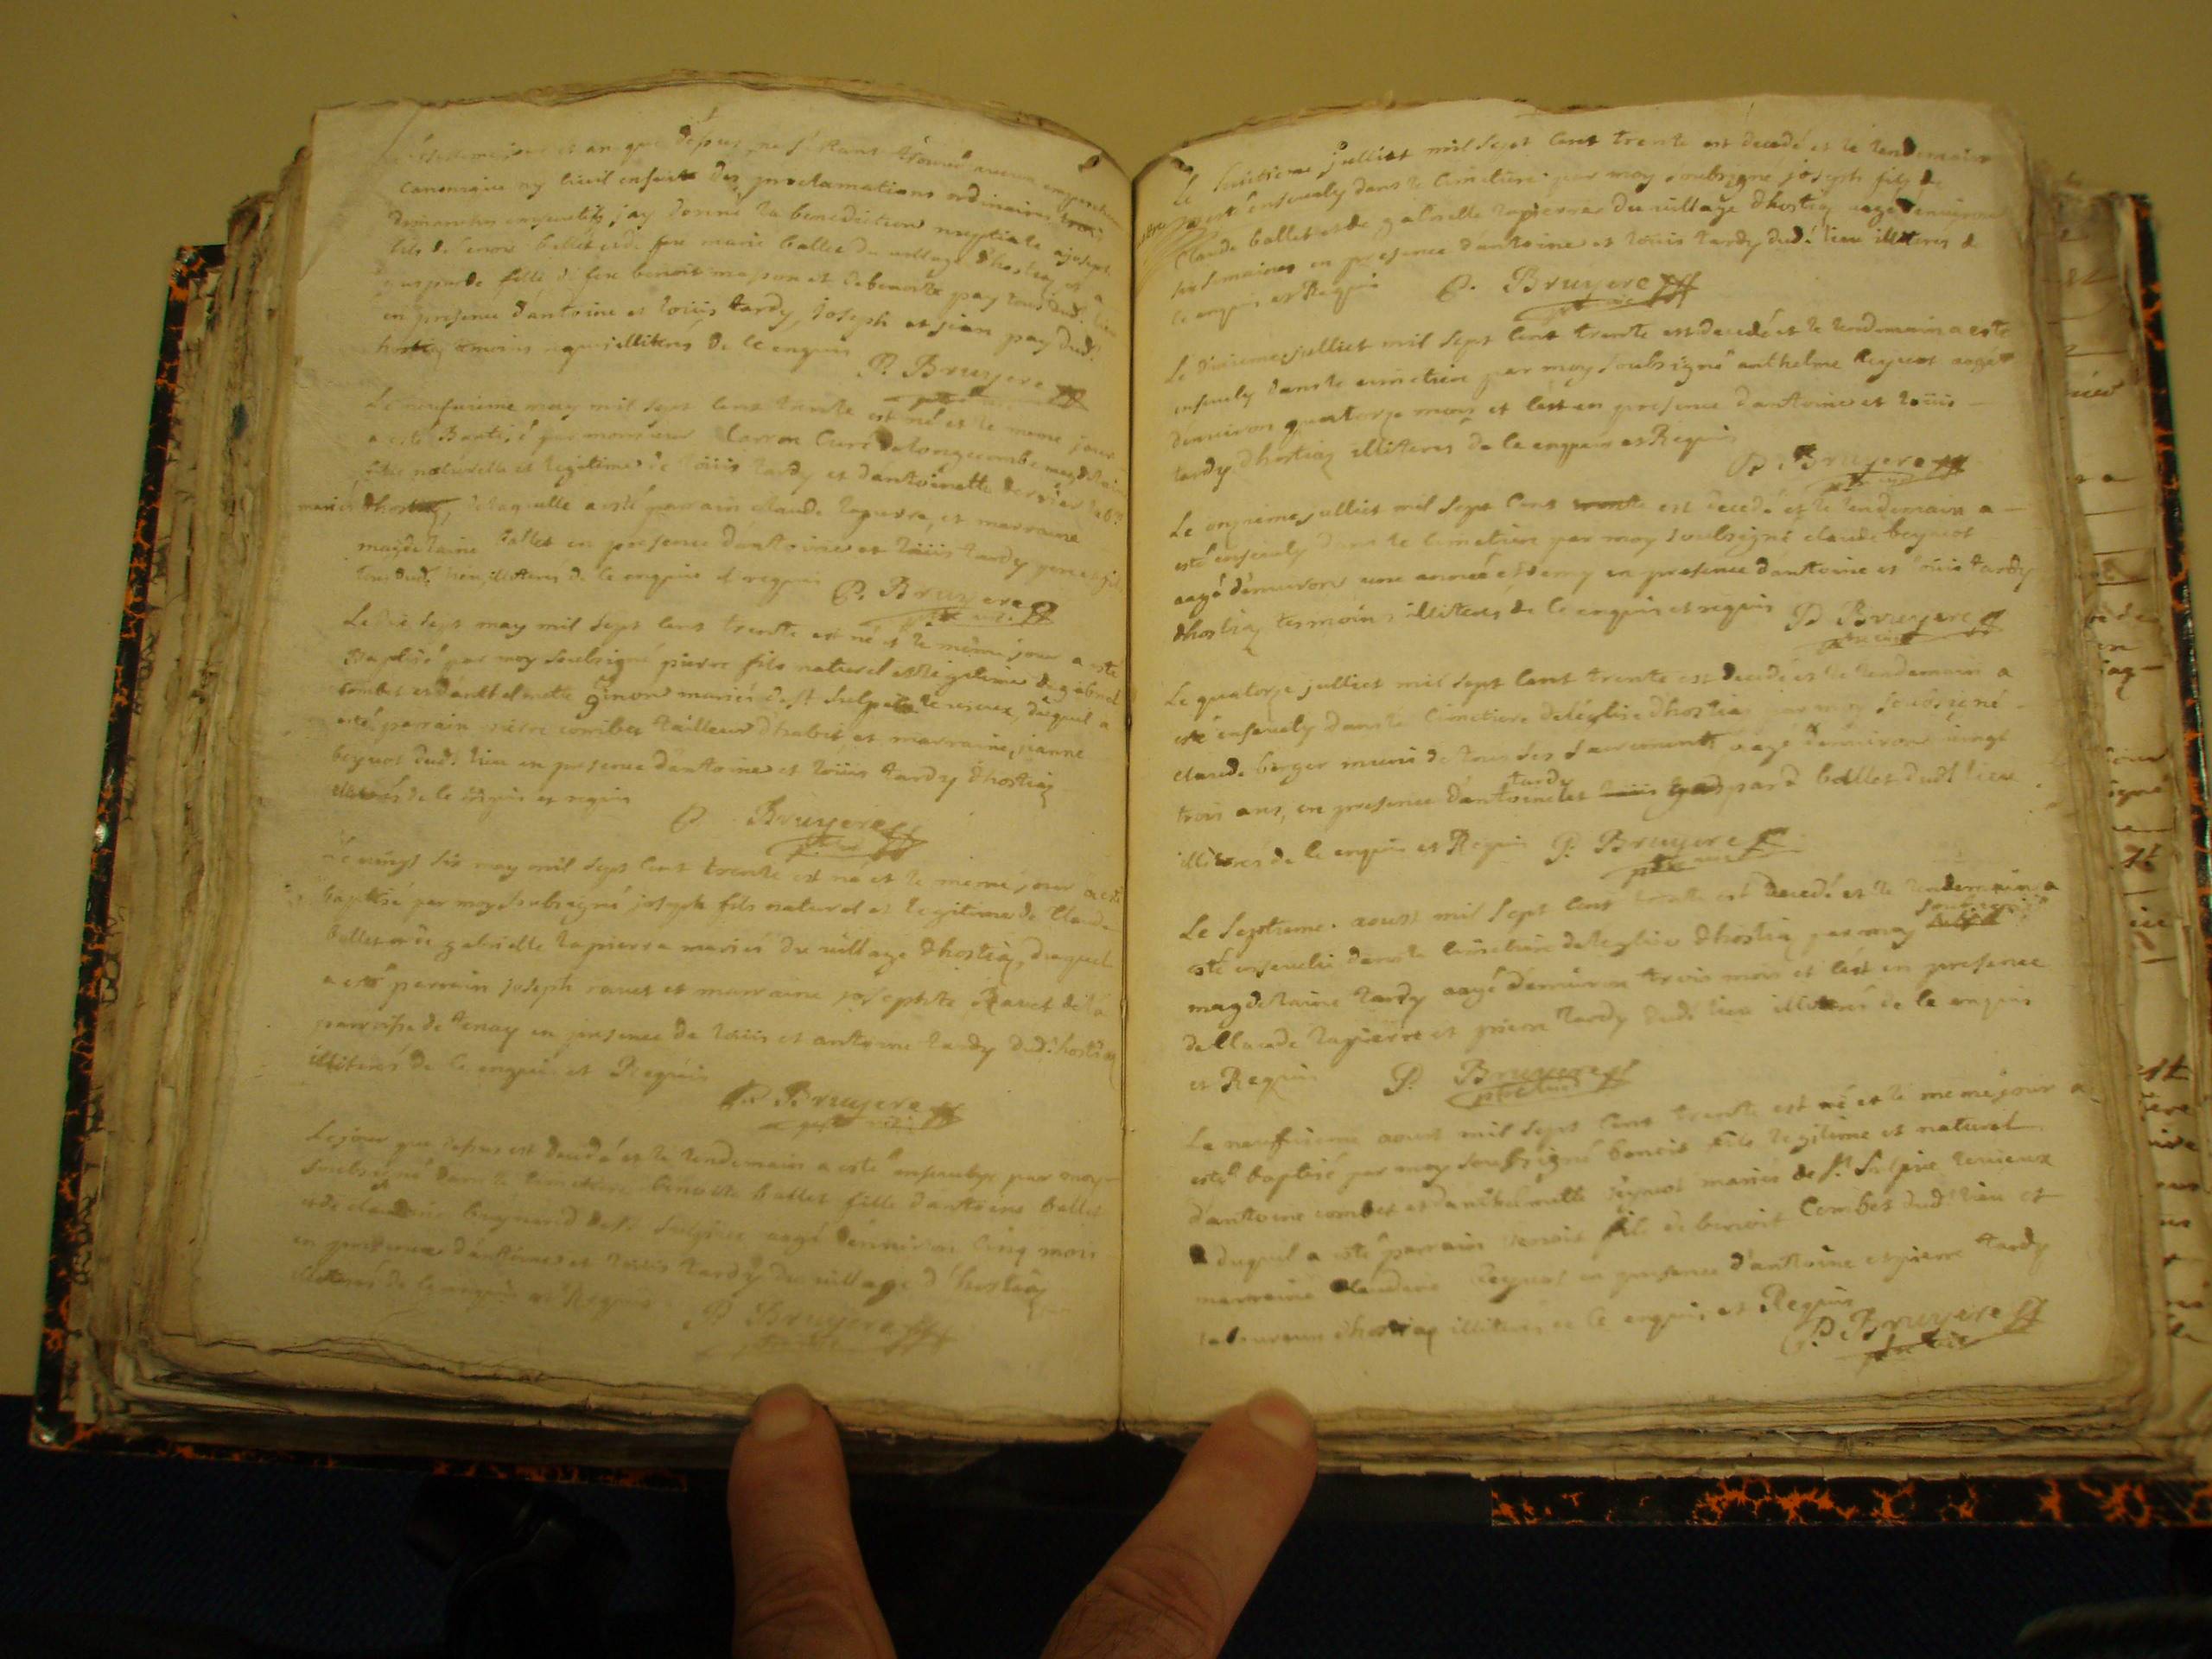 et an que depus ne s'etant trouvé aucun
canonique ny civil ensuite des proclamations ordinaires trois
dimanches jay donné la benediction nuptiale a joseph
fils de ballet et de feu marie ballet du village dhostiaz et a
fille de feu benoit et de benoite pay tous dud. lieu
en presence d'antoine et loüis tardy, joseph et jean pay dud.
hostiaz illiteres de ce enquis
P. Bruyere
Le neufvieme may mil sept cent trente est né et le meme jour
a esté Baptisé par monsieur curé de longecombe magdelaine
fille naturelle et legitime de loüis tardy et d'antoinette
mariés dhostiaz, de laquelle a esté parrain claude lapierre, et marraine
magdelaine ballet en presence d'antoine et loüis tardy
dud. lieu illiteres de ce enquis et requis P. Bruyere
Le dix sept may mil sept cent trente est né et le meme jour a esté
Baptisé par moy soubsigné pierre fils naturel et legitime de gabriel
combet et d'anthelmette mariés de st sulpice le vieux, duquel a
esté parrain pierre combet tailleur dhabit, et marraine jeanne
beynot dud. lieu en presence d'antoine et loüis tardy dhostiaz
illiterés de ce enquis et requis
P. Bruyere
Le vingt six may mil sept cent trente est né et le meme jour a esté
baptisé par moy soubsigné joseph fils naturel et legitime de claude
ballet et de gabrielle lapierre mariés du village dhostiaz, duquel
a esté parrain joseph ravet et marraine josephte Ravet de la
parroisse de tenay en presence de loüis et antoine tardy dud. hostiaz
illiterés de ce enquis et Requis
P. Bruyere
Le jour que depus est decedé et le lendemain a esté ensevely par moy
soubsigné dans le cimetiere benoite ballet fille d'antoine ballet
et de claudine de st sulpice aagé d'environ cinq mois
en presence d'antoine et loüis tardy du village d'hostiaz
illiterés de ce enquis et Requis
P. Bruyere
Le huitieme julliet mil sept cent trente est decedé et le lendemain
ensevely dans le cimetiere par moy soubsigné joseph fils de
Claude ballet et de gabrielle lapierre du village dhostiaz aagé d'environ
six semaines en presence d'antoine et loüis tardy dud. lieu illiterés de
ce enquis et Requis P. Bruyere
Le dixieme julliet mil sept cent trente est decedé et le lendemain a esté
ensevely dans le cimetiere par moy soubsigné anthelme Reynot aagé
d'environ quatorze mois et cest en presence d'antoine et loüis
tardy dhostiaz illiteres de ce enquis et Requis
P. Bruyere
Le onzieme julliet mil sept cent trente est decedé et le lendemain a
esté ensevely dans le cimetiere par moy soubsigné claude beynot
aagé d'environ une année et demy en presence d'antoine et loüis tardy
dhostiaz tesmoins illiteres de ce enquis et requis P. Bruyere
Le quatorze julliet mil sept cent trente est decedé et le lendemain a
esté ensevely dans le cimetiere de l'église dhostiaz par moy soubsigné
claude berger muni de tous ses sacrements aagé d'environ vingt
trois ans, en presence d'antoine tardy et loüis gaspard ballet dud. lieu
illiterés de ce enquis et Requis P. Bruyere
Le septieme aoust mil sept cent trente est decedé et le lendemain a
esté ensevelie dans le cimetiere de l'eglise dhostiaz par moy soubsigné
magdelaine tardy aagé d'environ trois mois et cest en presence
de claude lapierre et pierre tardy dud. lieu illiterés de ce enquis
et Requis P. Bruyere
Le neufvieme aoust mil sept cent trente est né et le meme jour a
esté baptisé par moy soubsigné benoit fils legitime et naturel
d'antoine combet et d'anthelmette Reynot mariés de st. Sulpice le vieux
duquel a esté parrain benoit fils de benoit Combet dud. lieu et
marraine claudine Reynot en presence d'antoine et pierre tardy
laboureur dhostiaz illiterés de ce enquis et Requis
P. Bruyere